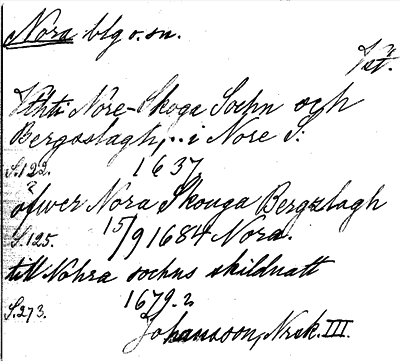 Nora blg o. sn.
Vst.
Uthi Nore-Skoga Sochn och
Bergsslagh, .. i Nore S:
S.122. 1637
öfwer Nora Skouga Bergzlagh
S.125. 15/9 1684 Nora.
till Nohra sochns skildnatt
S.273. 1679. 2
Johansson, Nrsk. III.